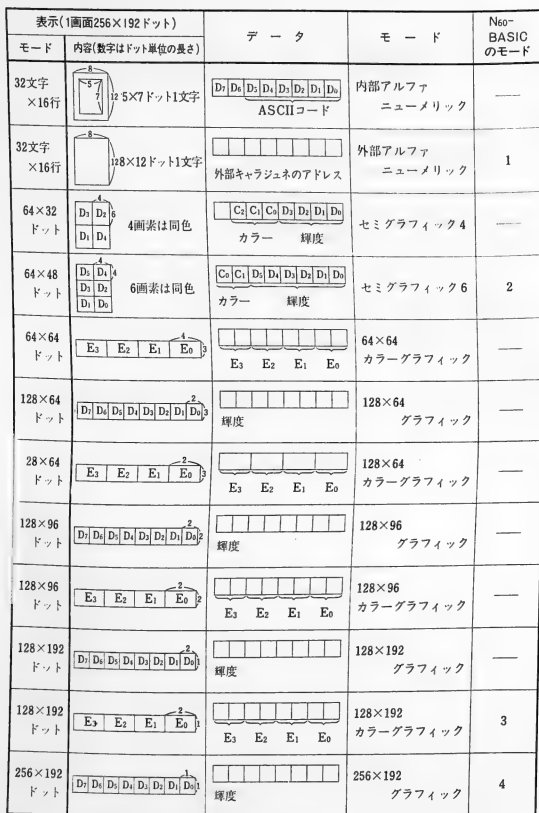 表示(1画面256×192ドット)
データ
モード
N60-
BASIC
のモード
モード
内容(数字はドット単位の長さ)
32文字
×16行
8
5
7
12
5×7ドット1文字
D7 D6 D5 D4 D3 D2 D1 D0
ASCIIコード
内部アルファ
ニューメリック
——
32文字
×16行
8
12
8×12ドット1文字
外部キャラジェネのアドレス
外部アルファ
ニューメリック
1
64×32
ドット
4
D3 D2
6
D1 D4
4画素は同色
C2 C1 C0 D3 D2 D1 D0
カラー 輝度
セミグラフィック4
——
64×48
ドット
4
D5 D4
4
D3 D2
D1 D0
6画素は同色
C0 C1 D5 D4 D3 D2 D1 D0
カラー 輝度
セミグラフィック6
2
64×64
ドット
4
E3 E2 E1 E0
3
E3 E2 E1 E0
64×64
カラーグラフィック
——
128×64
ドット
2
D7 D6 D5 D4 D3 D2 D1 D0
3
輝度
128×64
グラフィック
——
28×64
ドット
2
E3 E2 E1 E0
3
E3 E2 E1 E0
128×64
カラーグラフィック
——
128×96
ドット
2
D7 D6 D5 D4 D3 D2 D1 D0
2
輝度
128×96
グラフィック
——
128×96
ドット
2
E3 E2 E1 E0
2
E3 E2 E1 E0
128×96
カラーグラフィック
——
128×192
ドット
2
D7 D6 D5 D4 D3 D2 D1 D0
1
輝度
128×192
グラフィック
——
128×192
ドット
2
E3 E2 E1 E0
1
E3 E2 E1 E0
128×192
カラーグラフィック
3
256×192
ドット
1
D7 D6 D5 D4 D3 D2 D1 D0
1
輝度
256×192
グラフィック
4